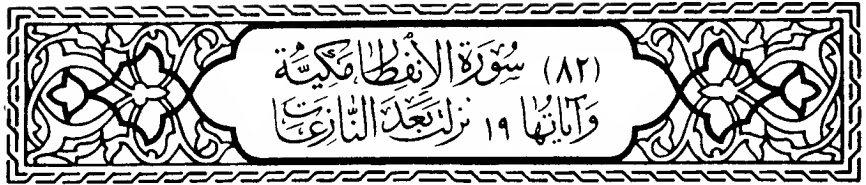 (٨٢) سُورَةُ الْإِنْفِطَارِ مَكِيَّةٌ
وَآيَاتُهَا ١٩ نَزَلَتْ بَعْدَ النَّازِعَاتِ